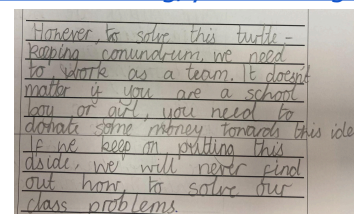 However, to solve this turtle-
keeping conundrum, we need
to work as a team. It doesn't
matter if you are a school
boy or girl, you need to
donate some money towards this idea
If we keep on putting this
aside, we will never find
out how, to solve our
class problems.